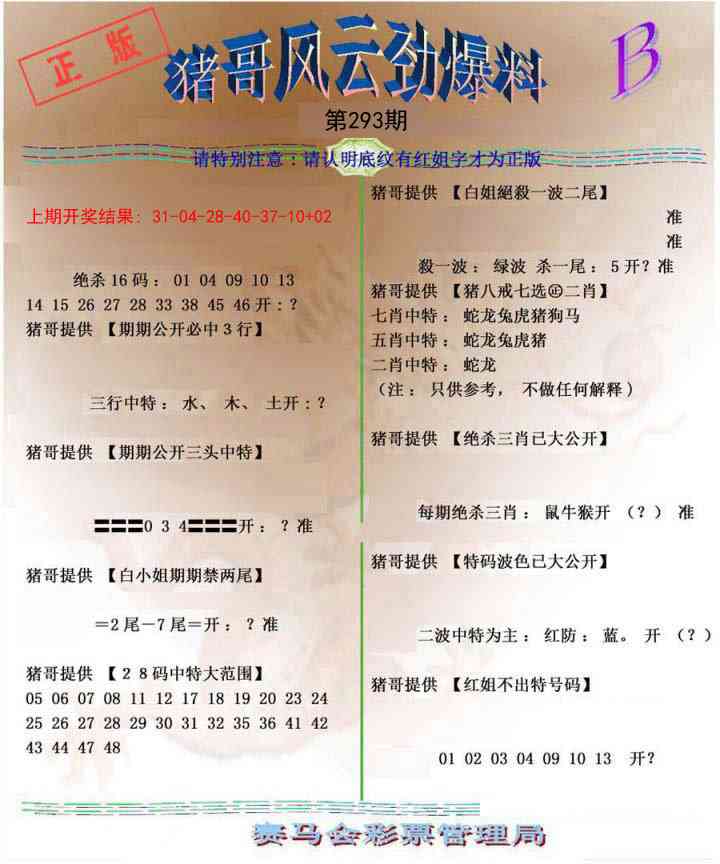 正版
猪哥风云劲爆料
B
第293期
请特别注意：请认明底纹有红姐字才为正版
上期开奖结果: 31-04-28-40-37-10+02
绝杀16码：01 04 09 10 13
14 15 26 27 28 33 38 45 46开:？
猪哥提供 【期期公开必中３行】
三行中特：水、木、土开:？
猪哥提供 【期期公开三头中特】
〓〓〓0 3 4〓〓〓开：？准
猪哥提供 【白小姐期期禁两尾】
＝2尾－7尾＝开：？准
猪哥提供 【２８码中特大范围】
05 06 07 08 11 12 17 18 19 20 23 24
25 26 27 28 29 30 31 32 35 36 41 42
43 44 47 48
猪哥提供 【白姐絕殺一波二尾】
准
准
殺一波：绿波 杀一尾：5开？准
猪哥提供 【猪八戒七选㊣二肖】
七肖中特：蛇龙兔虎猪狗马
五肖中特：蛇龙兔虎猪
二肖中特：蛇龙
(注：只供参考，不做任何解释)
猪哥提供 【绝杀三肖已大公开】
每期绝杀三肖：鼠牛猴开（？）准
猪哥提供 【特码波色已大公开】
二波中特为主：红防：蓝。开（？）
猪哥提供 【红姐不出特号码】
01 02 03 04 09 10 13 开？
赛马会彩票管理局